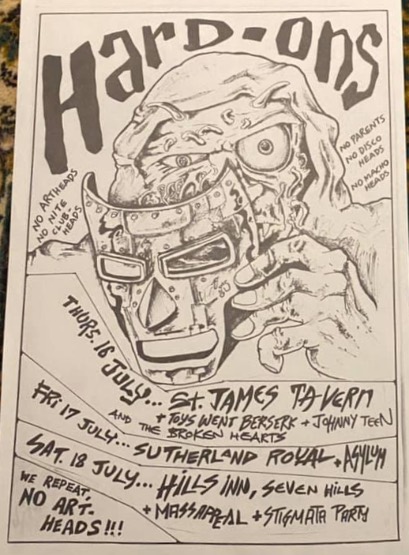 Hard-ons
NO ARTHEADS
NO NITE
CLUB-
HEADS
NO PARENTS
NO DISCO
HEADS
NO MACHO
HEADS
THURS. 16 JULY... St. JAMES TAVERN
+ TOYS WENT BERSERK + JOHNNY TEEN
AND THE BROKEN HEARTS
FRI 17 JULY... SUTHERLAND ROYAL + ASYLUM
SAT. 18 JULY... HILLS INN, SEVEN HILLS
+ MASSAPPEAL + STIGMATA PARTY
WE REPEAT,
NO ART.
HEADS!!!